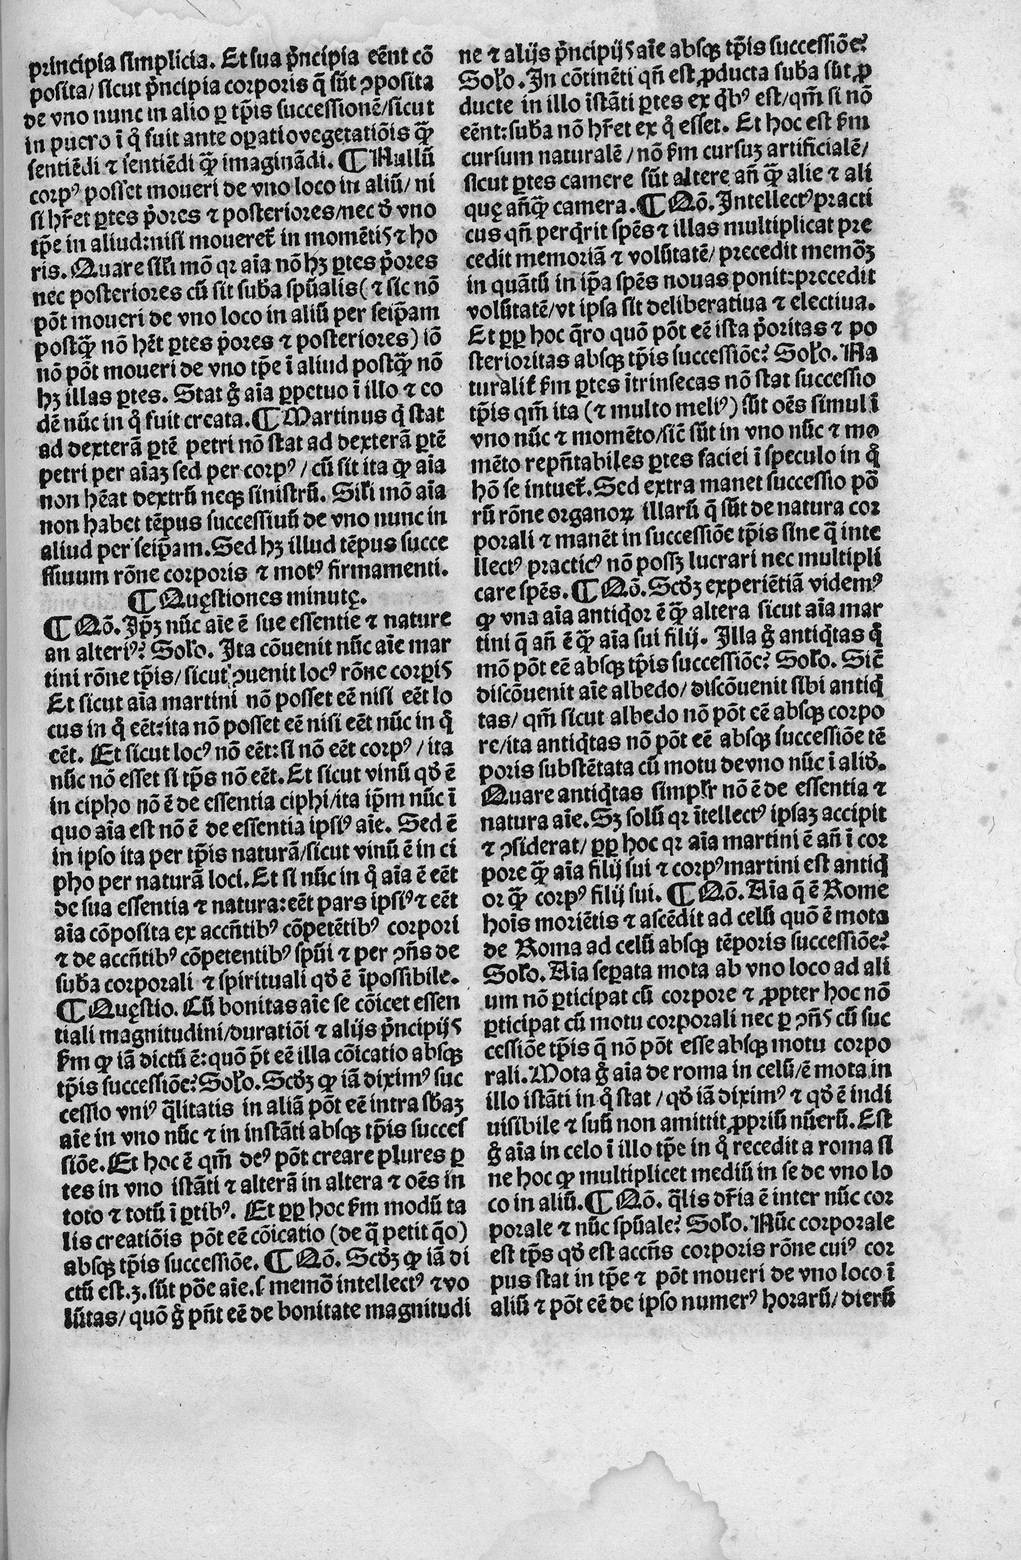 principia simplicia. Et sua p̃ncipia eẽnt cõ
posita/ sicut p̃ncipia corporis q̃ sũt ꝯposita
de vno nunc in alio ꝑ tp̃is successionẽ/sicut
in puero ĩ q̊ fuit ante oꝑatio vegetatiõis qꝫ̃
sentiẽdi ⁊ sentiẽdi qꝫ̃ imaginãdi. ¶ Nullũ
corpꝰ posset moueri de vno loco in aliũ/ ni
si hr̃et ꝑtes p̃ores ⁊ posteriores/nec d̕ vno
tp̃e in aliud:nisi moueret̃ in momẽtiꝭ ⁊ ho
ris. Quare sil̃i mõ qꝛ aĩa nõ hꝫ ꝑtes p̃ores
nec posteriores cũ sit sub̃a spũalis(⁊ sic nõ
põt moueri de vno loco in aliũ per seip̃am
postqꝫ̃ nõ hẽt ꝑtes p̃ores ⁊ posteriores) iõ
nõ põt moueri de vno tp̃e ĩ aliud postqꝫ̃ nõ
hꝫ illas ꝑtes. Stat g̊ aĩa ꝑpetuo ĩ illo ⁊ eo
dẽ nũc in q̊ fuit creata. ¶ Martinus q̊ stat
ad dexterã ꝑtẽ petri nõ stat ad dexterã ꝑtẽ
petri per aĩaꝫ sed per corpꝰ/ cũ sit ita ꝙ aĩa
non hẽat dextrũ neqꝫ sinistrũ. Sil̃i mõ aĩa
non habet tẽpus successiuũ de vno nunc in
aliud per seip̃am. Sed hꝫ illud tẽpus succe
ssiuum rõne corporis ⁊ motꝰ firmamenti.
¶ Quęstiones minutę.
¶ Qõ. Ip̃ꝫ nũc aĩe ẽ sue essentie ⁊ nature
an alteriꝰ? Solo. Ita cõuenit nũc aĩe mar
tini rõne tp̃is/ sicut ꝯuenit locꝰ rõne corpiꝭ
Et sicut aĩa martini nõ posset eẽ nisi eẽt lo
cus in q̊ eẽt:ita nõ posset eẽ nisi eẽt nũc in q̊
eẽt. Et sicut locꝰ nõ eẽt:si nõ eẽt corpꝰ/ ita
nũc nõ esset si tp̃s nõ eẽt. Et sicut vinũ qd̕ ẽ
in cipho nõ ẽ de essentia ciphi/ita ip̃m nũc ĩ
quo aĩa est nõ ẽ de essentia ipsiꝰ aĩe. Sed ẽ
in ipso ita per tp̃is naturã/sicut vinũ ẽ in ci
pho per naturã loci. Et si nũc in q̊ aĩa ẽ eẽt
de sua essentia ⁊ natura:eẽt pars ipsiꝰ ⁊ eẽt
aĩa cõposita ex accñtibꝰ cõpetẽtibꝰ corpori
⁊ de accñtibꝰ cõpetentibꝰ spũi ⁊ per ꝯñs de
sub̃a corporali ⁊ spirituali qd̕ ẽ ĩpossibile.
¶ Quęstio. Cũ bonitas aĩe se cõicet essen
tiali magnitudini/duratiõi ⁊ alijs p̃ncipijꝭ
ẜm ꝙ iã dictũ ẽ:quõ põt eẽ illa cõicatio absqꝫ
tp̃is successiõe? Solo. Scd̕ꝫ ꝙ iã diximꝰ suc
cessio vniꝰ q̃litatis in aliã põt eẽ intra sb̃aꝫ
aĩe in vno nũc ⁊ in instãti absqꝫ tp̃is succes
siõe. Et hoc ẽ qm̃ deꝰ põt creare plures ꝑ
tes in vno istãti ⁊ alterã in altera ⁊ oẽs in
toto ⁊ totũ ĩ ꝑtibꝰ. Et ꝓꝑ hoc ẜm modũ ta
lis creatiõis põt eẽ cõicatio (de q̃ petit q̃o)
absqꝫ tp̃is successiõe. ¶ Qõ. Scd̕ꝫ ꝙ iã di
ctũ est.ꝫ. sũt põe aĩe.ſ memõ intellectꝰ ⁊ vo
lũtas/ quõ g̊ pñt eẽ de bonitate magnitudi
ne ⁊ alijs p̃ncipijꝭ aĩe absqꝫ tp̃is successiõe?
Solo. In cõtinẽti qñ est ꝓducta sub̃a sũt ꝓ
ducte in illo ĩstãti ꝑtes ex q̊bꝰ est/qm̃ si nõ
eẽnt:sub̃a nõ hr̃et ex q̊ esset. Et hoc est ẜm
cursum naturalẽ/ nõ ẜm cursuꝫ artificialẽ/
sicut ꝑtes camere sũt altere añ qꝫ̃ alie ⁊ ali
quę añqꝫ̃ camera. ¶ Qõ. Intellectꝰ practi
cus qñ perq̊rit sp̃es ⁊ illas multiplicat pre
cedit memoriã ⁊ volũtatẽ/ precedit memõꝫ
in quãtũ in ip̃a sp̃es nouas ponit:precedit
volũtatẽ/vt ipsa sit deliberatiua ⁊ electiua.
Et ꝓꝑ hoc q̃ro quõ põt eẽ ista p̃oritas ⁊ po
sterioritas absqꝫ tp̃is successiõe? Solo. Na
turalit̃ ẜm ꝑtes ĩtrinsecas nõ stat successio
tp̃is qm̃ ita (⁊ multo meliꝰ) sũt oẽs simul ĩ
vno nũc ⁊ momẽto/sic̃ sũt in vno nũc ⁊ mo
mẽto repñtabiles ꝑtes faciei ĩ speculo in q̊
hõ se intuet̃. Sed extra manet successio põ
rũ rõne organoꝝ illarũ q̃ sũt de natura cor
porali ⁊ manẽt in successiõe tp̃is sine q̃ inte
llectꝰ practicꝰ nõ possꝫ lucrari nec multipli
care sp̃es. ¶ Qõ. Scd̕ꝫ experiẽtiã videmꝰ
ꝙ vna aĩa antiq̊or ẽ qꝫ̃ altera sicut aĩa mar
tini q̃ añ ẽ qꝫ̃ aĩa sui filij. Illa g̊ antiq̊tas q̊
mõ põt eẽ absqꝫ tp̃is successiõe? Solo. Sic̃
discõuenit aĩe albedo/ discõuenit sibi antiq̊
tas/ qm̃ sicut albedo nõ põt eẽ absqꝫ corpo
re/ita antiq̊tas nõ põt eẽ absqꝫ successiõe tẽ
poris substẽtata cũ motu de vno nũc ĩ alid̕.
Quare antiq̊tas simplr̃ nõ ẽ de essentia ⁊
natura aĩe. Sꝫ solũ qꝛ ĩtellectꝰ ipsaꝫ accipit
⁊ ꝯsiderat/ ꝓꝑ hoc qꝛ aĩa martini ẽ añ ĩ cor
pore qꝫ̃ aĩa filij sui ⁊ corpꝰ martini est antiq̊
or qꝫ̃ corpꝰ filij sui. ¶ Qõ. Aĩa q̃ ẽ Rome
hoĩs moriẽtis ⁊ ascẽdit ad celũ quõ ẽ mota
de Roma ad celũ absqꝫ tẽporis successiõe?
Solo. Aĩa seꝑata mota ab vno loco ad ali
um nõ ꝑticipat cũ corpore ⁊ ꝓpter hoc nõ
ꝑticipat cũ motu corporali nec ꝑ ꝯñꝭ cũ suc
cessiõe tp̃is q̃ nõ põt esse absqꝫ motu corpo
rali. Mota g̊ aĩa de roma in celũ/ẽ mota in
illo istãti in q̊ stat/ qd̕ iã diximꝰ ⁊ qd̕ ẽ indi
uisibile ⁊ suũ non amittit ꝓpriũ nũerũ. Est
g̊ aĩa in celo ĩ illo tp̃e in q̊ recedit a roma si
ne hoc ꝙ multiplicet mediũ in se de vno lo
co in aliũ. ¶ Qõ. q̃lis dr̃ia ẽ inter nũc cor
porale ⁊ nũc spũale? Solo. Nũc corporale
est tp̃s qd̕ est accñs corporis rõne cuiꝰ cor
pus stat in tp̃e ⁊ põt moueri de vno loco ĩ
aliũ ⁊ põt eẽ de ipso numerꝰ horarũ/ dierũ